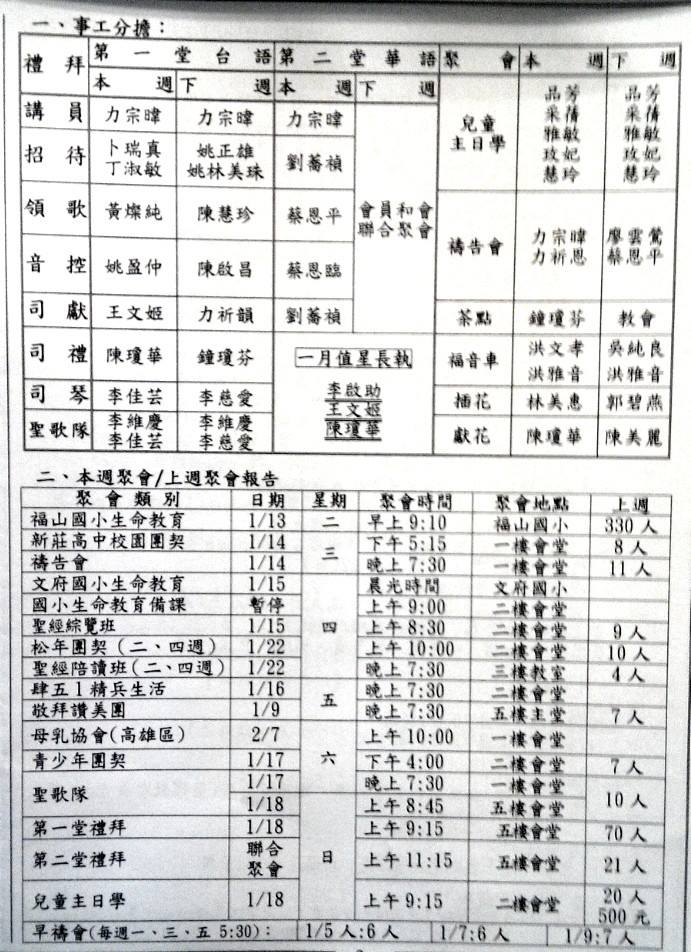 一、事工分擔：
禮拜 第一堂台語 第二堂華語 聚會 本週 下週
本週 下週 本週 下週
講員 力宗暐 力宗暐 力宗暐
招待 卜瑞真 丁淑敏 姚正雄 姚林美珠 劉蕎禎
領歌 黃燦純 陳慧珍 蔡恩平
音控 姚盈仲 陳啟昌 蔡恩臨
司獻 王文姬 力祈韻 劉蕎禎
會員和會
聯合聚會
司禮 陳瓊華 鐘瓊芬
司琴 李佳芸 李慈愛
聖歌隊 李維慶 李佳芸 李維慶 李慈愛
一月值星長執
李啟助
王文姬
陳瓊華
兒童主日學 品芳 采蒨 雅敏 玫妃 慧玲 品芳 采蒨 雅敏 玫妃 慧玲
禱告會 力宗暐 力祈恩 廖雲鶯 蔡恩平
茶點 鐘瓊芬 教會
福音車 洪文孝 洪雅音 吳純良 洪雅音
插花 林美惠 郭碧燕
獻花 陳瓊華 陳美麗
二、本週聚會/上週聚會報告
聚會類別 日期 星期 聚會時間 聚會地點 上週
福山國小生命教育 1/13 二 早上9:10 福山國小 330人
新莊高中校園團契 1/14 三 下午5:15 一樓會堂 8人
禱告會 1/14 晚上7:30 一樓會堂 11人
文府國小生命教育 1/15 晨光時間 文府國小
國小生命教育備課 暫停 上午9:00 二樓會堂
聖經綜覽班 1/15 四 上午8:30 二樓會堂 9人
松年團契(二、四週) 1/22 上午10:00 二樓會堂 10人
聖經陪讀班(二、四週) 1/22 晚上7:30 三樓教室 4人
肆五1精兵生活 1/16 五 晚上7:30 二樓會堂
敬拜讚美團 1/9 晚上7:30 五樓主堂 7人
母乳協會(高雄區) 2/7 上午10:00 一樓會堂
青少年團契 1/17 六 下午4:00 二樓會堂 7人
聖歌隊 1/17 晚上7:30 一樓會堂 10人
1/18 上午8:45 五樓會堂
第一堂禮拜 1/18 上午9:15 五樓會堂 70人
第二堂禮拜 聯合聚會 日 上午11:15 五樓會堂 21人
兒童主日學 1/18 上午9:15 二樓會堂 20人 500元
早禱會(每週一、三、五 5:30)： 1/5人:6人 1/7:6人 1/9:7人